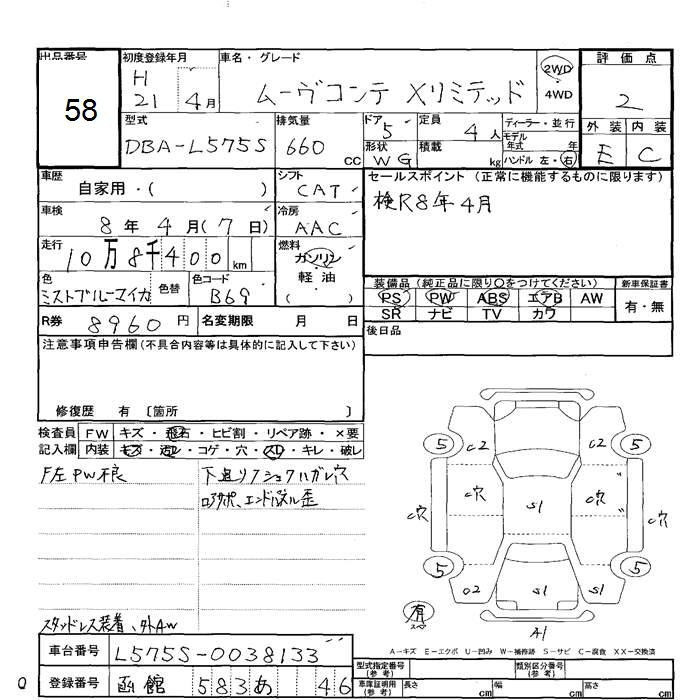 出品番号
58
初度登録年月
H
21 4月
車名・グレード
ムーヴコンテ Xリミテッド
2WD
4WD
評価点
2
外装 内装
E C
型式
DBA-L575S
排気量
660 CC
ドア 5
形状 WG
定員 4人
積載 kg
ディーラー・並行
モデル年式 年
ハンドル 左・右
車歴
自家用・( )
シフト
CAT
セールスポイント (正常に機能するものに限ります)
検R8年4月
車検
8年 4月(7日)
冷房
AAC
走行
10万8千400km
燃料
ガソリン
軽油
( )
色
ミストブルーマイカ
色替
色コード
B69
装備品 (純正品に限り○をつけてください)
新車保証書
PS PW ABS エアB AW
SR ナビ TV カワ
有・無
R券 8960円
名変期限 月 日
後日品
注意事項申告欄 (不具合内容等は具体的に記入して下さい)
修復歴 有 〔箇所 〕
検査員 FW キズ・飛石・ヒビ割・リペア跡・×要
記入欄 内装 キズ・汚レ・コゲ・穴・スレ・キレ・破レ
F左PW不良
下廻り
スタッドレス装着、外AW
5 C2 C2 5
C穴 C穴 S1 C穴 C穴
5 C2 S1 S1 5
有
スペ
A1
A－キズ E－エクボ U－凹み W－補修跡 S－サビ C－腐食 XX－交換済
車台番号 L575S-0038133
登録番号 函館 583 あ 46
型式指定番号
(参考)
類別区分番号
(参考)
車庫証明用
(参考)
長さ cm
幅 cm
高さ cm